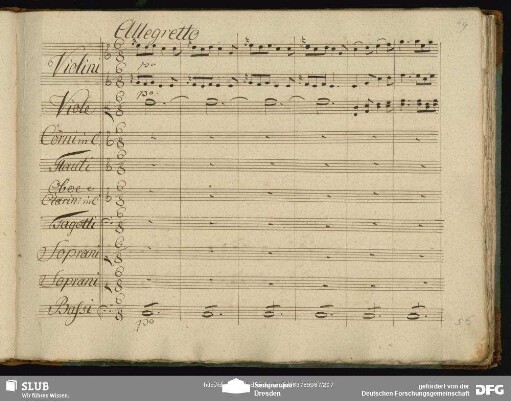 Allegretto
Violini
po
po
Viole
Corni in C
Flauti
Oboe e
Clarin: in C
Fagotti
Soprani
Soprani
Bassi
po
SLUB
Wir führen Wissen.
Dresden
gefördert von der
Deutschen Forschungsgemeinschaft
DFG